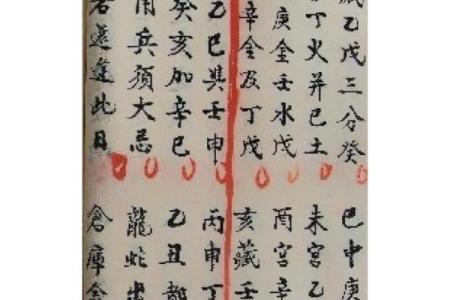 藏乙戊三分癸 巳中庚
丁火并己土 未宮乙
庚金壬水戊 酉宮辛
辛金及丁戊 亥藏壬
乙巳與壬申 丙申丁
癸亥加辛巳 乙丑都
用兵須大忌 龍蛇出
若還逢此日 倉庫金